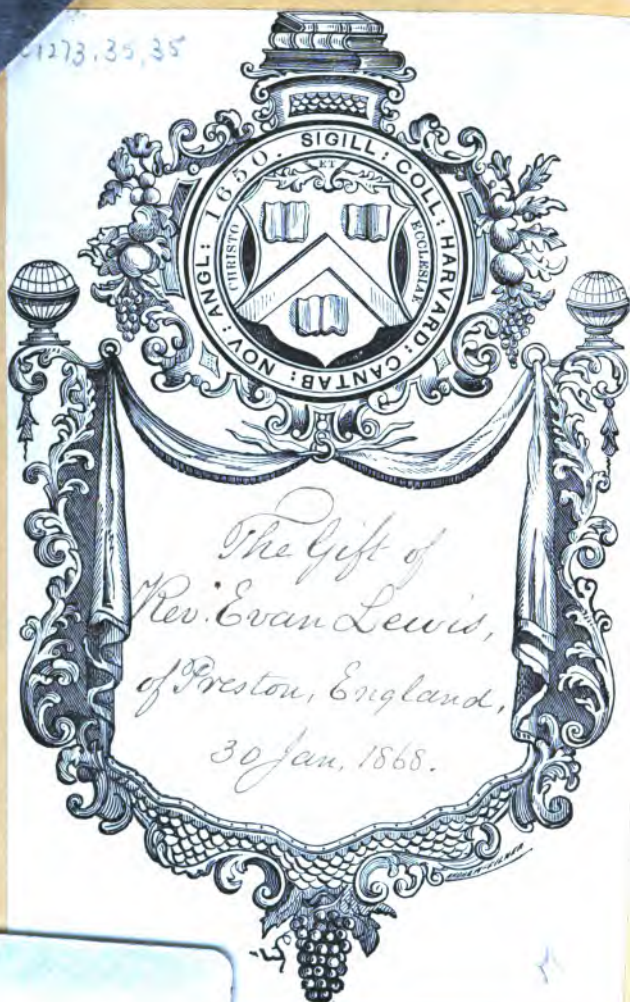 1273.35,35
SIGILL: COLL: HARVARD: CANTAB: NOV: ANGL: 1650.
CHRISTO
ET
ECCLESIAE
The Gift of
Rev. Evan Lewis,
of Preston, England,
30 Jan. 1868.